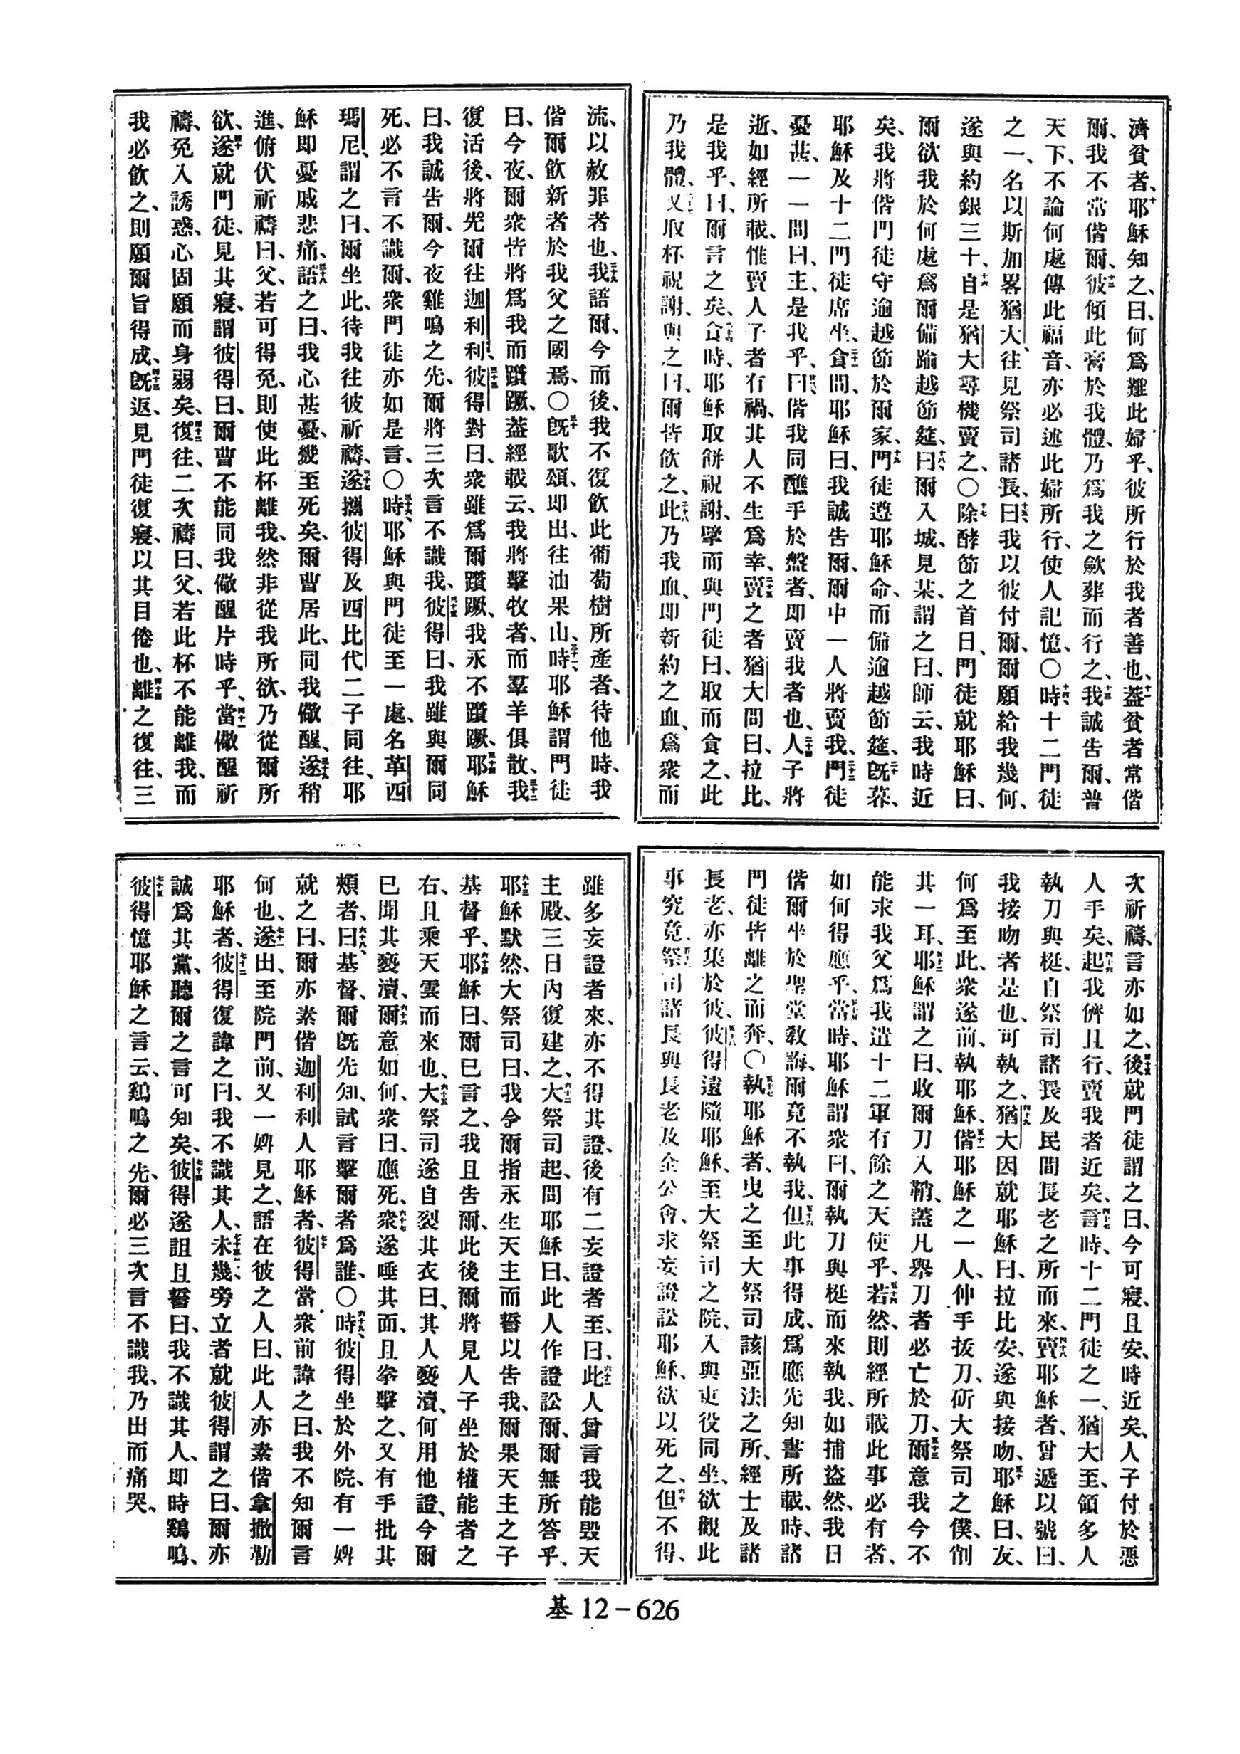 濟貧者、耶穌知之、曰、何爲難此婦乎、彼所行於我者善也、蓋貧者常偕
爾、我不常偕爾、彼傾此膏於我體、乃爲我之歛葬而行之、我誠告爾、普
天下、不論何處傳此福音、亦必述此婦所行、使人記憶、〇時十二門徒
之一、名以斯加畧猶大、往見祭司諸長、曰、我以彼付爾、爾願給我幾何、
遂與約銀三十、自是猶大尋機賣之、〇除酵節之首日、門徒就耶穌曰、
爾欲我於何處爲爾備踰越節筵、曰、爾入城、見某、謂之曰、師云、我時近
矣、我將偕門徒守逾越節於爾家、門徒遵耶穌命、而備逾越節筵、旣暮、
耶穌及十二門徒席坐、食間、耶穌曰、我誠告爾、爾中一人將賣我、門徒
憂甚、一一問曰、主是我乎、曰、偕我同醮手於盤者、即賣我者也、人子將
逝、如經所載、惟賣人子者有禍、其人不生爲幸、賣之者猶大問曰、拉比、
是我乎、曰、爾言之矣、食時、耶穌取餅祝謝、擘而與門徒曰、取而食之、此
乃我體、又取杯祝謝、與之曰、爾皆飲之、此乃我血、即新約之血、爲衆而
流、以赦罪者也、我語爾、今而後、我不復飲此葡萄樹所產者、待他時、我
偕爾飲新者於我父之國焉、〇旣歌頌、即出、往油果山、時耶穌謂門徒
曰、今夜、爾衆皆將爲我而躓蹶、蓋經載云、我將擊牧者、而羣羊俱散、我
復活後、將先爾往迦利利、彼得對曰、衆雖爲爾躓蹶、我永不躓蹶、耶穌
曰、我誠告爾、今夜雞鳴之先、爾將三次言不識我、彼得曰、我雖與爾同
死、必不言不識爾、衆門徒亦如是言、〇時耶穌與門徒至一處、名革西
瑪尼、謂之曰、爾坐此、待我往彼祈禱、遂攜彼得及西比代二子同往、耶
穌即憂戚悲痛、語之曰、我心甚憂、幾至死矣、爾曹居此、同我儆醒、遂稍
進、俯伏祈禱曰、父、若可得免、則使此杯離我、然非從我所欲、乃從爾所
欲、遂就門徒、見其寢、謂彼得曰、爾曹不能同我儆醒片時乎、當儆醒祈
禱、免入誘惑、心固願而身弱矣、復往、二次禱曰、父、若此杯不能離我、而
我必飲之、則願爾旨得成、旣返、見門徒復寢、以其目倦也、離之復往、三
次祈禱、言亦如之、後就門徒謂之曰、今可寢且安、時近矣、人子付於惡
人手矣、起、我儕且行、賣我者近矣、言時、十二門徒之一、猶大至、領多人
執刀與梃、自祭司諸長及民間長老之所而來、賣耶穌者、曾遞以號曰、
我接吻者是也、可執之、猶大因就耶穌曰、拉比安、遂與接吻、耶穌曰、友、
何爲至此、衆遂前、執耶穌、偕耶穌之一人、伸手拔刀、斫大祭司之僕、削
其一耳、耶穌謂之曰、收爾刀入鞘、蓋凡舉刀者必亡於刀、爾意我今不
能求我父爲我遣十二軍有餘之天使乎、若然、則經所載此事必有者、
如何得應乎、當時、耶穌謂衆曰、爾執刀與梃而來執我、如捕盜然、我日
偕爾坐於聖堂敎誨、爾竟不執我、但此事得成、爲應先知書所載、時、諸
門徒皆離之而奔、〇執耶穌者、曳之至大祭司該亞法之所、經士及諸
長老亦集於彼、彼得遠隨耶穌、至大祭司之院、入與吏役同坐、欲觀此
事究竟、祭司諸長與長老及全公會、求妄證訟耶穌、欲以死之、但不得、
雖多妄證者來、亦不得其證、後有二妄證者至、曰、此人曾言我能毀天
主殿、三日內復建之、大祭司起、問耶穌曰、此人作證訟爾、爾無所答乎、
耶穌默然、大祭司曰、我令爾指永生天主而誓以告我、爾果天主之子
基督乎、耶穌曰、爾已言之、我且告爾、此後爾將見人子坐於權能者之
右、且乘天雲而來也、大祭司遂自裂其衣曰、其人褻瀆、何用他證、今爾
已聞其褻瀆、爾意如何、衆曰、應死、衆遂唾其面、且拳擊之、又有手批其
頰者、曰、基督、爾旣先知、試言擊爾者爲誰、〇時彼得坐於外院、有一婢
就之曰、爾亦素偕迦利利人耶穌者、彼得當衆前諱之曰、我不知爾言
何也、遂出至院門前、又一婢見之、語在彼之人曰、此人亦素偕拿撒勒
耶穌者、彼得復諱之曰、我不識其人、未幾、旁立者就彼得謂之曰、爾亦
誠爲其黨、聽爾之言可知矣、彼得遂詛且誓曰、我不識其人、即時鷄鳴、
彼得憶耶穌之言云、鷄鳴之先、爾必三次言不識我、乃出而痛哭、
基12-626